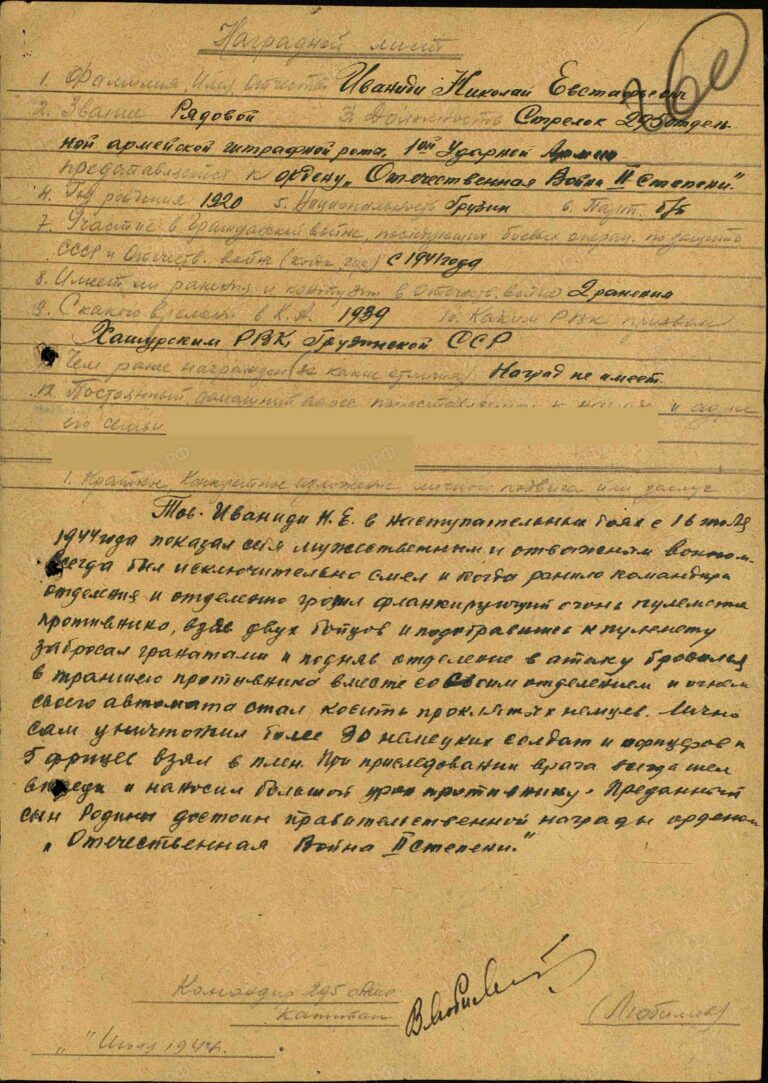 Наградной лист
360
1. Фамилия, Имя, Отчество Иваниди Николай Евстафьевич
2. Звание Рядовой 3. Должность Стрелок 295 отдель-
ной армейской штрафной рота, 1ой Ударной Армии
представляется к ордену „Отечественная Война II Степени."
4. Год рождения 1920 5. Национальность Грузин 6. Парт. б/п
7. Участие в Гражданской войне, последующих боевых операц. по защите
СССР и Отечеств. войне (когда, где) с 1941 года
8. Имеет ли ранения и контузии в отечеств. войне 2 ранения
9. С какого времени в К.А. 1939 10. Каким РВК призван
Хашурским РВК, Грузинской ССР
11. Чем ранее награжден (за какие отличия) Наград не имеет.
12. Постоянный домашний адрес представляемого к награде и адрес
его семьи
1. Краткое конкретное изложение личного подвига или заслуг
Тов. Иваниди Н.Е. в наступательных боях с 16 июля
1944 года показал себя мужественным и отважным воином.
Всегда был исключительно смел и когда ранило командира
отделения и отделению грозил фланкирующий огонь пулемета
противника, взяв двух бойцов и подобравшись к пулемету
забросал гранатами и подняв отделение в атаку бросился
в траншею противника вместе со своим отделением и огнем
своего автомата стал косить проклятых немцев. Лично
сам уничтожил более 30 немецких солдат и офицеров и
5 фрицев взял в плен. При приследовании врага всегда шел
впереди и наносил большой урон противнику. Преданный
сын Родины достоин правительственной награды орденом
„Отечественная Война II Степени."
Командир 295 оашр
капитан
(Любимов)
„ " Июля 1944г.